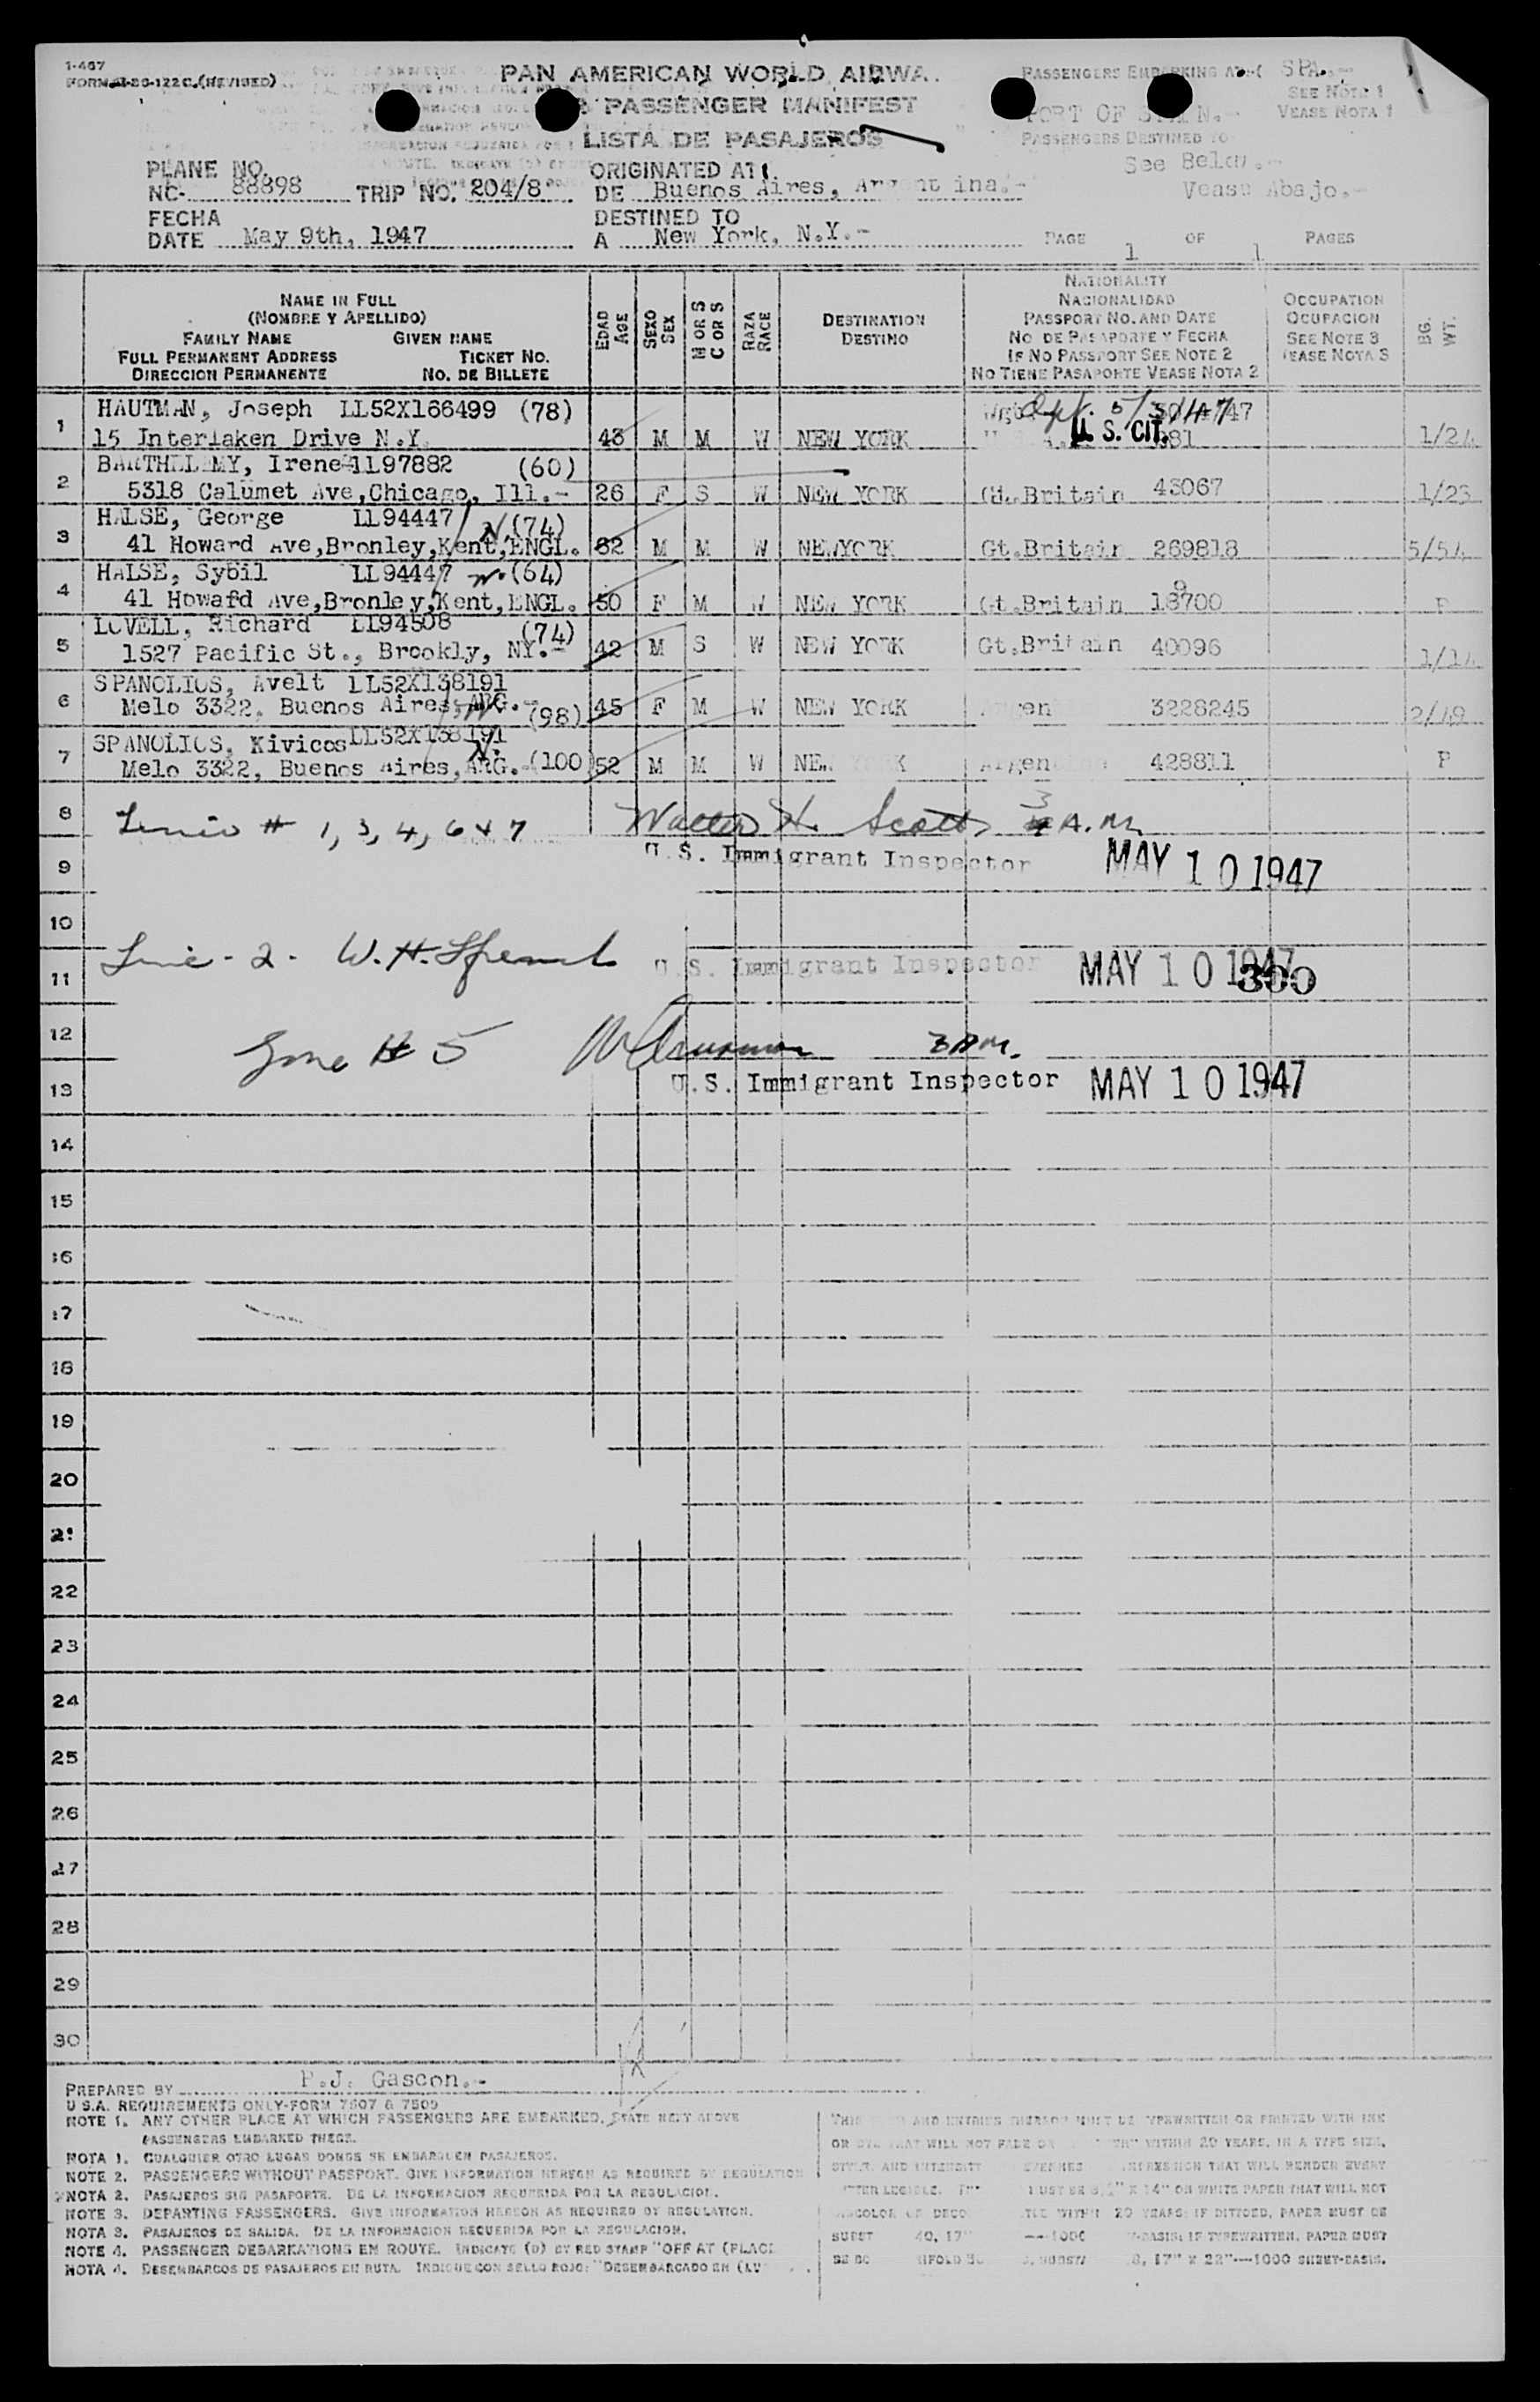 1-467
FORM (REVISED)
PAN AMERICAN WORLD AIRWA
PASSENGER MANIFEST
LISTA DE PASAJEROS
PASSENGERS EMBARKING AT
SEE NOTE 1
VEASE NOTA 1
PORT OF
PASSENGERS DESTINED TO
See Below.-
Vease Abajo.-
PLANE NO.
NC- 88898 TRIP NO. 204/8
ORIGINATED AT
DE Buenos Aires, Argentina.-
FECHA
DATE May 9th, 1947
DESTINED TO
A New York, N.Y.-
PAGE 1 OF 1 PAGES
NAME IN FULL
(NOMBRE Y APELLIDO)
FAMILY NAME GIVEN NAME
FULL PERMANENT ADDRESS TICKET NO.
DIRECCION PERMANENTE NO. DE BILLETE
EDAD AGE
SEXO SEX
M OR S C OR S
RAZA RACE
DESTINATION
DESTINO
NATIONALITY
NACIONALIDAD
PASSPORT NO. AND DATE
NO DE PASAPORTE Y FECHA
IF NO PASSPORT SEE NOTE 2
NO TIENE PASAPORTE VEASE NOTA 2
OCCUPATION
OCUPACION
SEE NOTE 3
VEASE NOTA 3
BG. WT.
1 HAUTMAN, Joseph LL52X166499 (78)
15 Interlaken Drive N.Y. 43 M M W NEW YORK U. S. CIT. 1/24
2 BARTHELEMY, Irene LL97882 (60)
5318 Calumet Ave, Chicago, Ill.- 26 F S W NEW YORK Gt. Britain 43067 1/23
3 HALSE, George LL94447 N. (74)
41 Howard Ave, Bronley, Kent, ENGL. 62 M M W NEWYORK Gt. Britain 269818 5/54
4 HALSE, Sybil LL94447 (64)
41 Howard Ave, Bronley, Kent, ENGL. 50 F M W NEW YORK Gt. Britain 18700 P
5 LOVELL, Richard LL94508 (74)
1527 Pacific St., Brookly, NY.- 42 M S W NEW YORK Gt. Britain 40096 1/14
6 SPANOLIOS, Avelt LL52X138191
Melo 3322, Buenos Aires, ARG.- (98) 45 F M W NEW YORK 3228245 2/49
7 SPANOLIOS, Kivicos LL52X138191
Melo 3322, Buenos Aires, ARG.- N. (100 52 M M W 428811 P
8 # 1, 3, 4, 6 & 7 Walter H. Scott 3 A.M.
U.S. Immigrant Inspector MAY 10 1947
9
10
Line - 2 - W. H.
11 U.S. Immigrant Inspector MAY 10 1947
300
12 Line # 5 3 AM.
13 U.S. Immigrant Inspector MAY 10 1947
14
15
16
17
18
19
20
21
22
23
24
25
26
27
28
29
30
PREPARED BY P.J. Gascon.-
U.S.A. REQUIREMENTS ONLY-FORM 7507 & 7509
NOTE 1. ANY OTHER PLACE AT WHICH PASSENGERS ARE EMBARKED, STATE NEXT ABOVE
PASSENGERS EMBARKED THERE.
NOTA 1. CUALQUIER OTRO LUGAR DONDE SE EMBARQUEN PASAJEROS.
NOTE 2. PASSENGERS WITHOUT PASSPORT. GIVE INFORMATION HEREON AS REQUIRED BY REGULATION
NOTA 2. PASAJEROS SIN PASAPORTE. DE LA INFORMACION REQUERIDA POR LA REGULACION.
NOTE 3. DEPARTING PASSENGERS. GIVE INFORMATION HEREON AS REQUIRED BY REGULATION.
NOTA 3. PASAJEROS DE SALIDA. DE LA INFORMACION REQUERIDA POR LA REGULACION.
NOTE 4. PASSENGER DEBARKATIONS EN ROUTE. INDICATE (D) BY RED STAMP "OFF AT (PLACE
NOTA 4. DESEMBARCOS DE PASAJEROS EN RUTA. INDIQUE CON SELLO ROJO: "DESEMBARCADO EN (LU
THIS AND ENTRIES THEREON MUST BE TYPEWRITTEN OR PRINTED WITH INK
OR THAT WILL NOT FADE WITHIN 20 YEARS, IN A TYPE SIZE,
STYLE, AND INTENSITY THAT WILL RENDER EVERY
LEGIBLE. MUST BE X 14" ON WHITE PAPER THAT WILL NOT
WITHIN 20 YEARS; IF DITTOED, PAPER MUST BE
40, 17" 1000 IF TYPEWRITTEN, PAPER MUST
17" X 22"—1000 SHEET-BASIS.